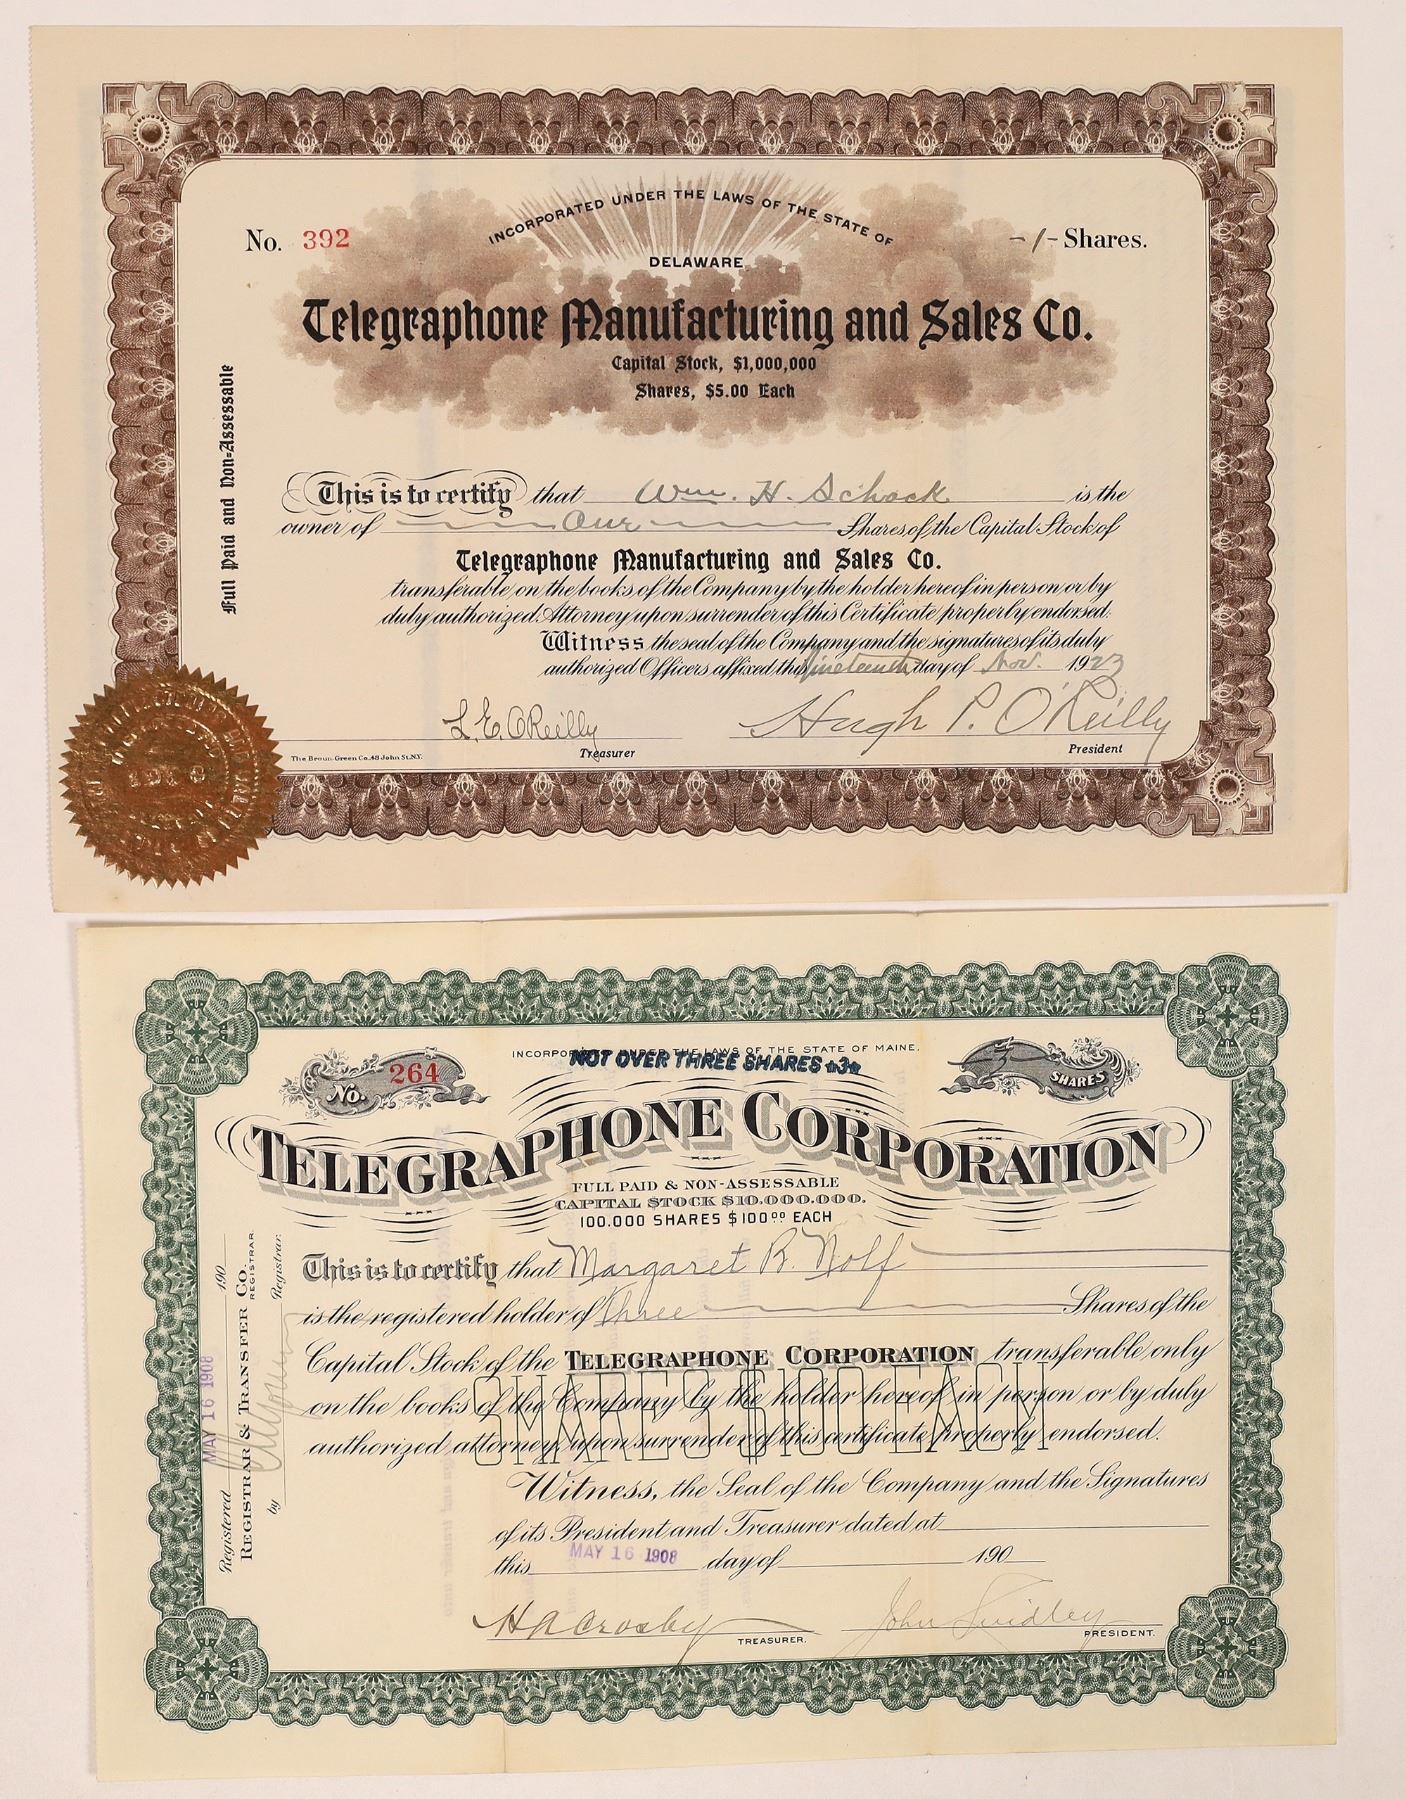 INCORPORATED UNDER THE LAWS OF THE STATE OF
DELAWARE
No. 392
-1- Shares.
Telegraphone Manufacturing and Sales Co.
Capital Stock, $1,000,000
Shares, $5.00 Each
Full Paid and Non-Assessable
This is to certify that Wm. H. Schock is the
owner of One Shares of the Capital Stock of
Telegraphone Manufacturing and Sales Co.
transferable on the books of the Company by the holder hereof in person or by
duly authorized Attorney upon surrender of this Certificate properly endorsed.
Witness the seal of the Company and the signatures of its duly
authorized Officers affixed this nineteenth day of Nov. 1923
L. E. O'Reilly
Hugh P. O'Reilly
Treasurer
President
The Braun-Green Co. 48 John St. N.Y.
INCORPORATED UNDER THE LAWS OF THE STATE OF MAINE.
NOT OVER THREE SHARES *3*
No. 264
3 SHARES
TELEGRAPHONE CORPORATION
FULL PAID & NON-ASSESSABLE
CAPITAL STOCK $10.000.000.
100.000 SHARES $100.00 EACH
This is to certify that Margaret B. Nolf
is the registered holder of Three Shares of the
Capital Stock of the TELEGRAPHONE CORPORATION transferable only
on the books of the Company by the holder hereof in person or by duly
authorized attorney upon surrender of this certificate properly endorsed.
SHARES $100 EACH
Witness, the Seal of the Company and the Signatures
of its President and Treasurer dated at
this MAY 16 1908 day of 190
H A Crosby
John Lindley
TREASURER.
PRESIDENT.
Registered MAY 16 1908 190
REGISTRAR & TRANSFER CO.
REGISTRAR
by Registrar.